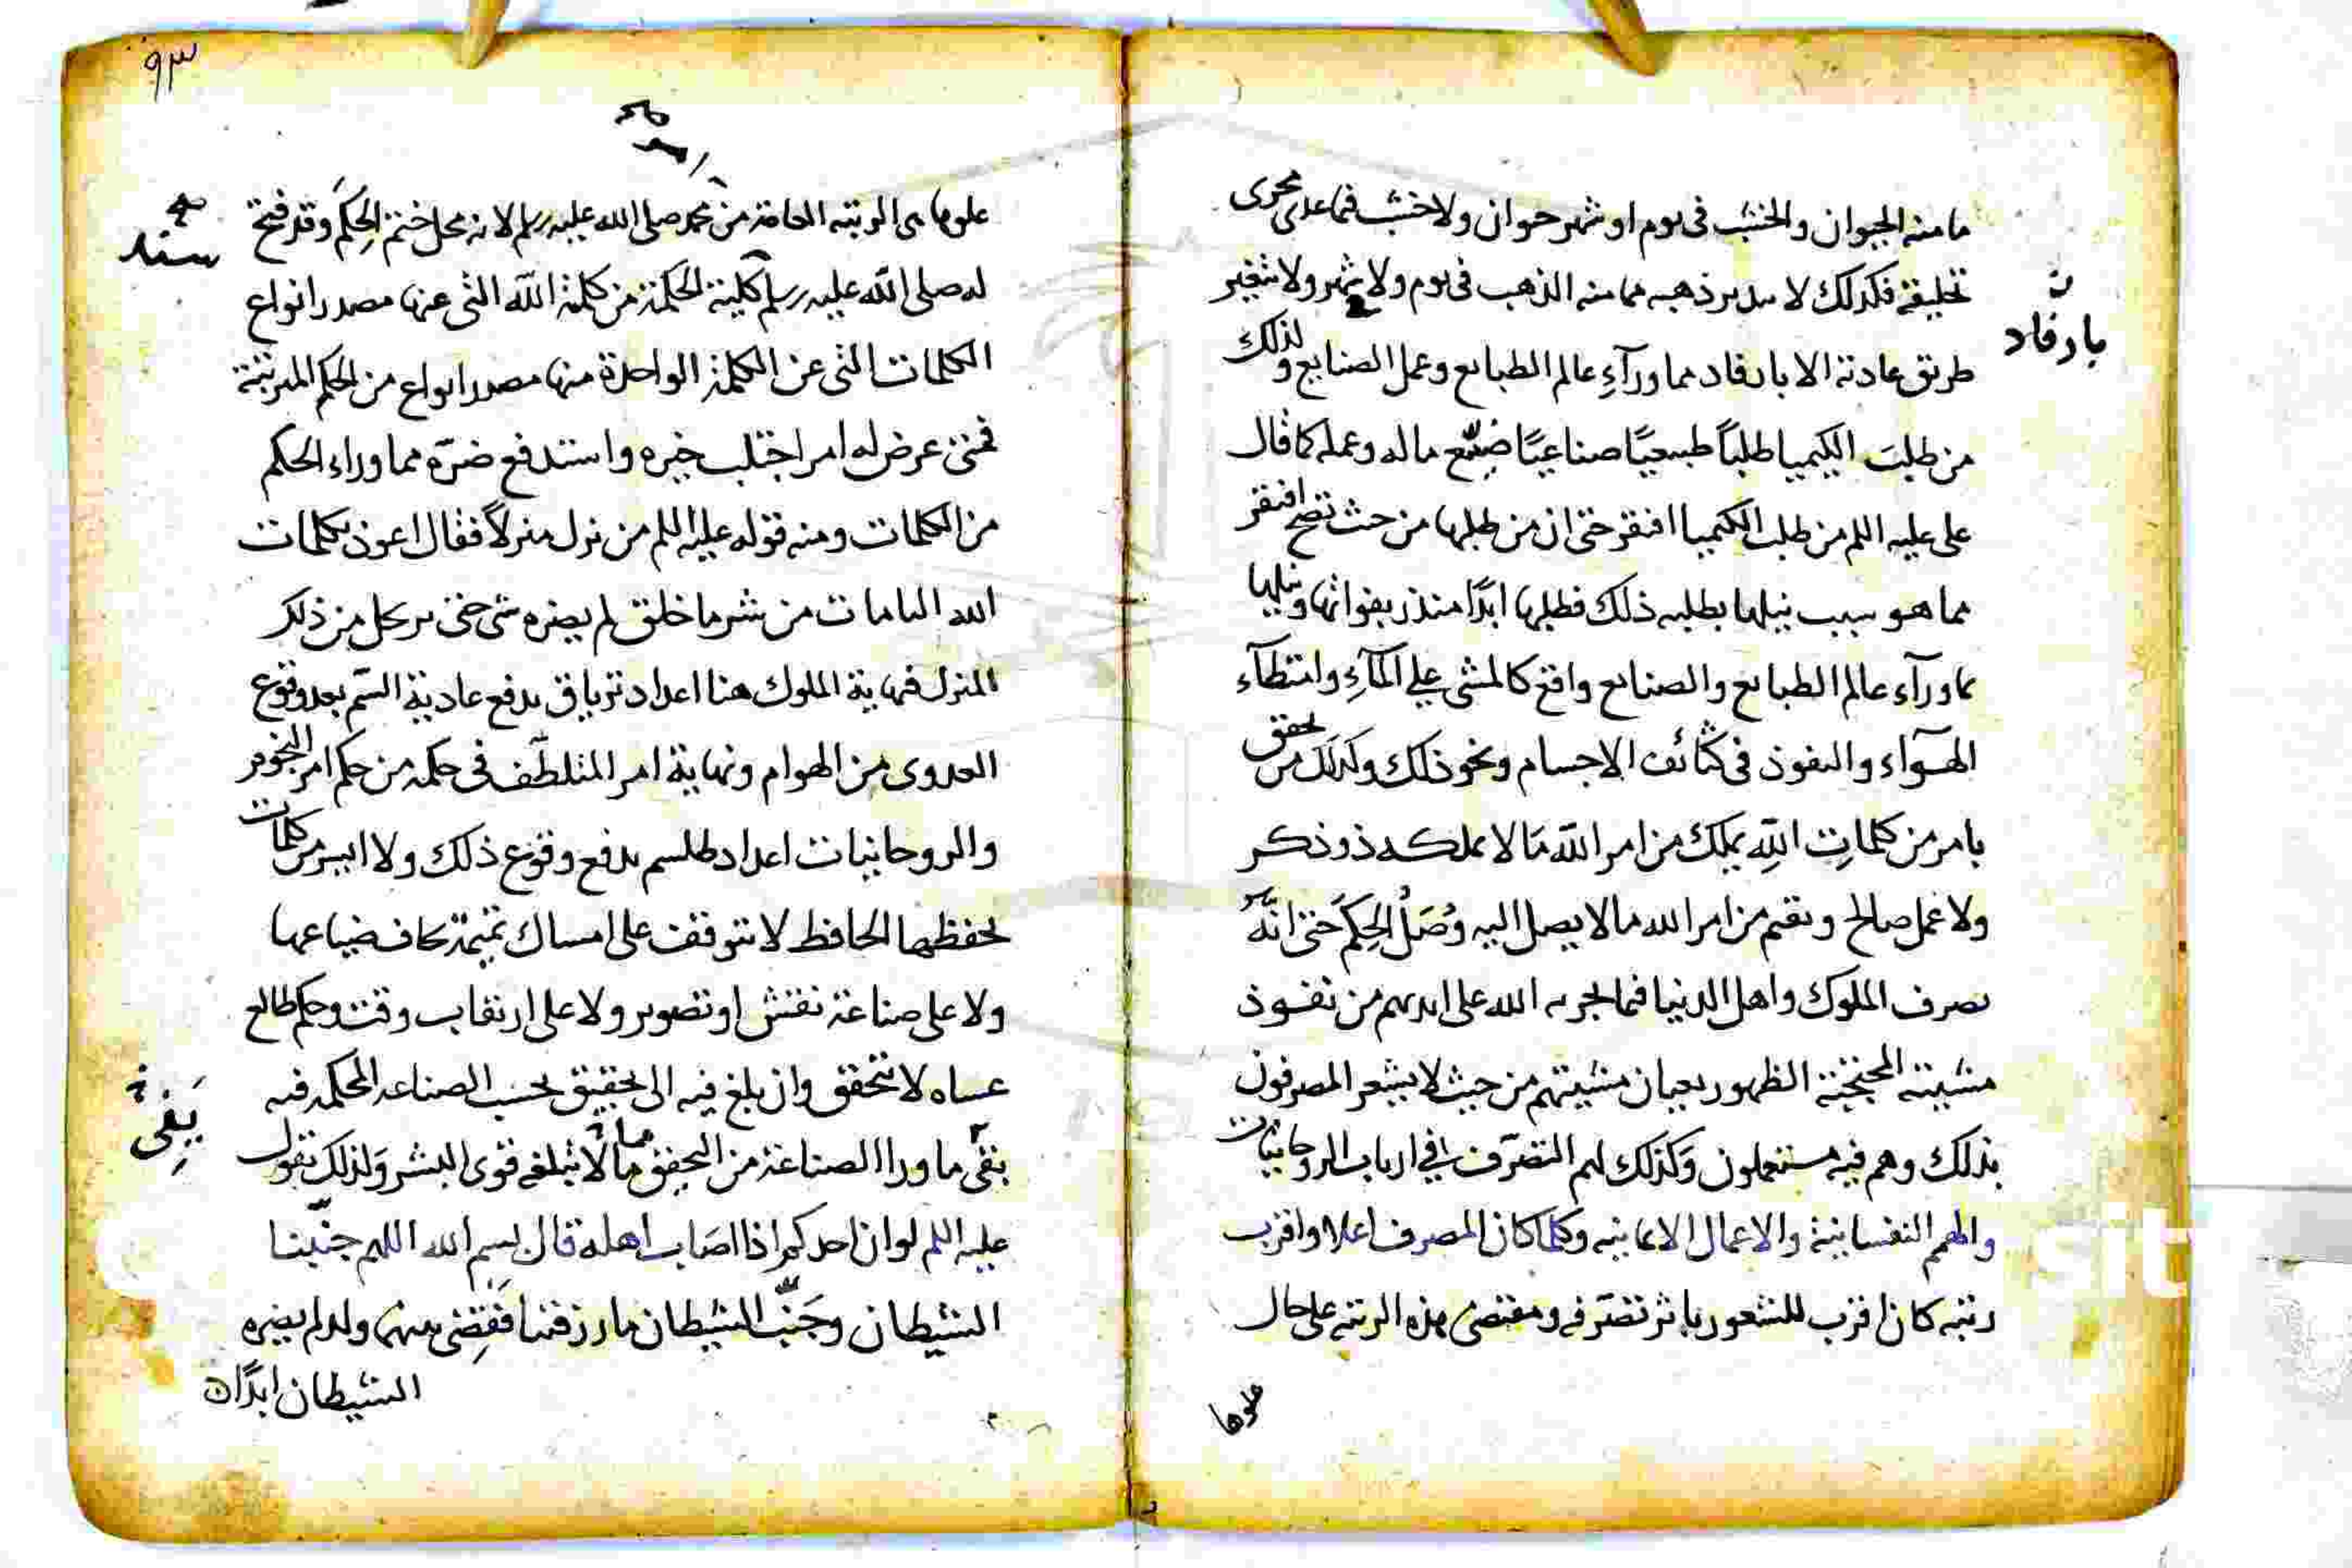 ما منه الحيوان والخشب فى يوم او شهر حيوان ولا خشب فيما على مجرى
تخليقه فكذلك لا يدبر ذهبه مما منه الذهب فى يوم ولا شهر ولا يتغير
طريق عادته الا بارفاد مما ورآءِ عالم الطبايع وعمل الصنايع ولذلك
بارفاد
من طلبَ الكيميا طلباً طبيعيًا صناعيًا ضيّع ماله وعمله كما قال
على عليه السلم من طلب الكيميا افتقر حتى ان من طلبها من حيث تصح افتقر
مما هو سبب نيلها بطلبه ذلك فطلبها ابدًا منذر بفواتها ونيلها
مما ورآء عالم الطبايع والصنايع واقع كالمشى على المآءِ وامتطآء
الهوآء والنفوذ فى كثائف الاجسام ونحو ذلك وكذلك من تحقق
بامر من كلماتِ اللهِ يملك من امر الله مَا لا يملكه ذو ذكر
ولا عمل صالح ويقيم من امر الله ما لا يصل اليه وُصَلُ الحِكم حَتى انّه
يصرف الملوك واهل الدنيا فيما يجريه الله على ايديهم من نفوذ
مشيته الظهور بعيان مشيتهم من حيث لا يشعر المصرفون
بذلك وهم فيه مستعملون وَكذلك لهم التصرّف فى ارباب الروحانيات
والهمم النفسانية والاعمال الايمانيه وكلما كان المصرف اعلا واقرب
رتبه كان اقرب للشعور باثر تصرّفه ومقتضى هذه الرتبه على حال
علوها
٩٣
علوها هى الرتبه الخاصة من محمد صلى الله عليه وسلم لانه محل ختم الحِكَم وقد فتح
له صلى الله عليه وسلم كلية الحكمة من كلمة الله التى عنها مصدر انواع
الكلمات التى عن الكلمة الواحدة منها مصدر انواع من الحكم المرتبة
فمتى عرض له امر اجتلب خيره واستدفع ضرّه مما وراء الحكم
من الكلمات ومنه قوله عليه السلم من نزل منزلاً فقال اعوذ بكلمات
الله التامات من شر ما خلق لم يضره شى حتى يرتحل من ذلك
المنزل فنهاية الملوك هنا اعداد ترياق يدفع عادية السّم بعد وقوع
العدوى من الهوام ونهاية امر المتلطّف فى حكمه من حكم امر النجوم
والروحانيات اعداد طلسم يدفع وقوع ذلك ولا ايسر من كلمات
يحفظها الحافظ لا تتوقف على امساك تميمة يخاف ضياعها
ولا على صناعة نقش او تصوير ولا على ارتقاب وقت وحكم طالع
عساه لا يتحقق وان بلغ فيه الى تحقيق بحسب الصناعه المحكمه فيه
بقى ما ورا الصناعة من التحقق ما لا تبلغه قوى البشر وَلذلك يقول
عليه السلم لو ان احدكم اذا اصَاب اهله قال بسم الله اللهم جنّبنا
الشيطان وجَنّب الشيطان ما رزقتنا فقضى بينهما ولد لم يضره
الشيطان ابدًا